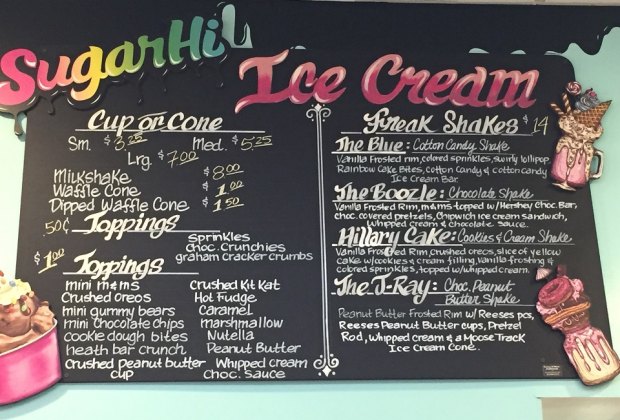 SugarHiL
Ice Cream
Cup or Cone
Sm. $3.25 Med. $5.25
Lrg. $7.00
Milkshake $8.00
Waffle Cone $1.00
Dipped Waffle Cone $1.50
50¢ Toppings
sprinkles
choc. Crunchies
graham cracker crumbs
$1.00 Toppings
mini m&ms
Crushed Oreos
mini gummy bears
mini chocolate chips
cookie dough bites
heath bar crunch
Crushed Peanut butter
cup
Crushed Kit Kat
Hot Fudge
Caramel
marshmallow
Nutella
Peanut Butter
Whipped cream
Choc. Sauce
Freak Shakes $14
The Blue: Cotton Candy Shake
Vanilla Frosted rim, colored sprinkles, swirly lollipop
Rainbow Cake Bites, cotton Candy & cotton candy
Ice Cream Bar.
The Boozle: Chocolate Shake
Vanilla Frosted Rim, m&ms topped w/Hershey Choc. Bar,
choc. covered pretzels, Chipwich ice cream sandwich,
whipped cream & chocolate sauce.
Hillary Cake: Cookies & Cream Shake
Vanilla Frosted Rim, crushed oreos, slice of yellow
cake w/cookies & cream filling, vanilla frosting &
colored sprinkles, topped w/whipped cream.
The T-Ray: Choc. Peanut
Butter Shake
Peanut Butter Frosted Rim w/ Reeses pcs,
Reeses Peanut Butter cups, Pretzel
Rod, whipped cream & a Moose Track
Ice Cream Cone.